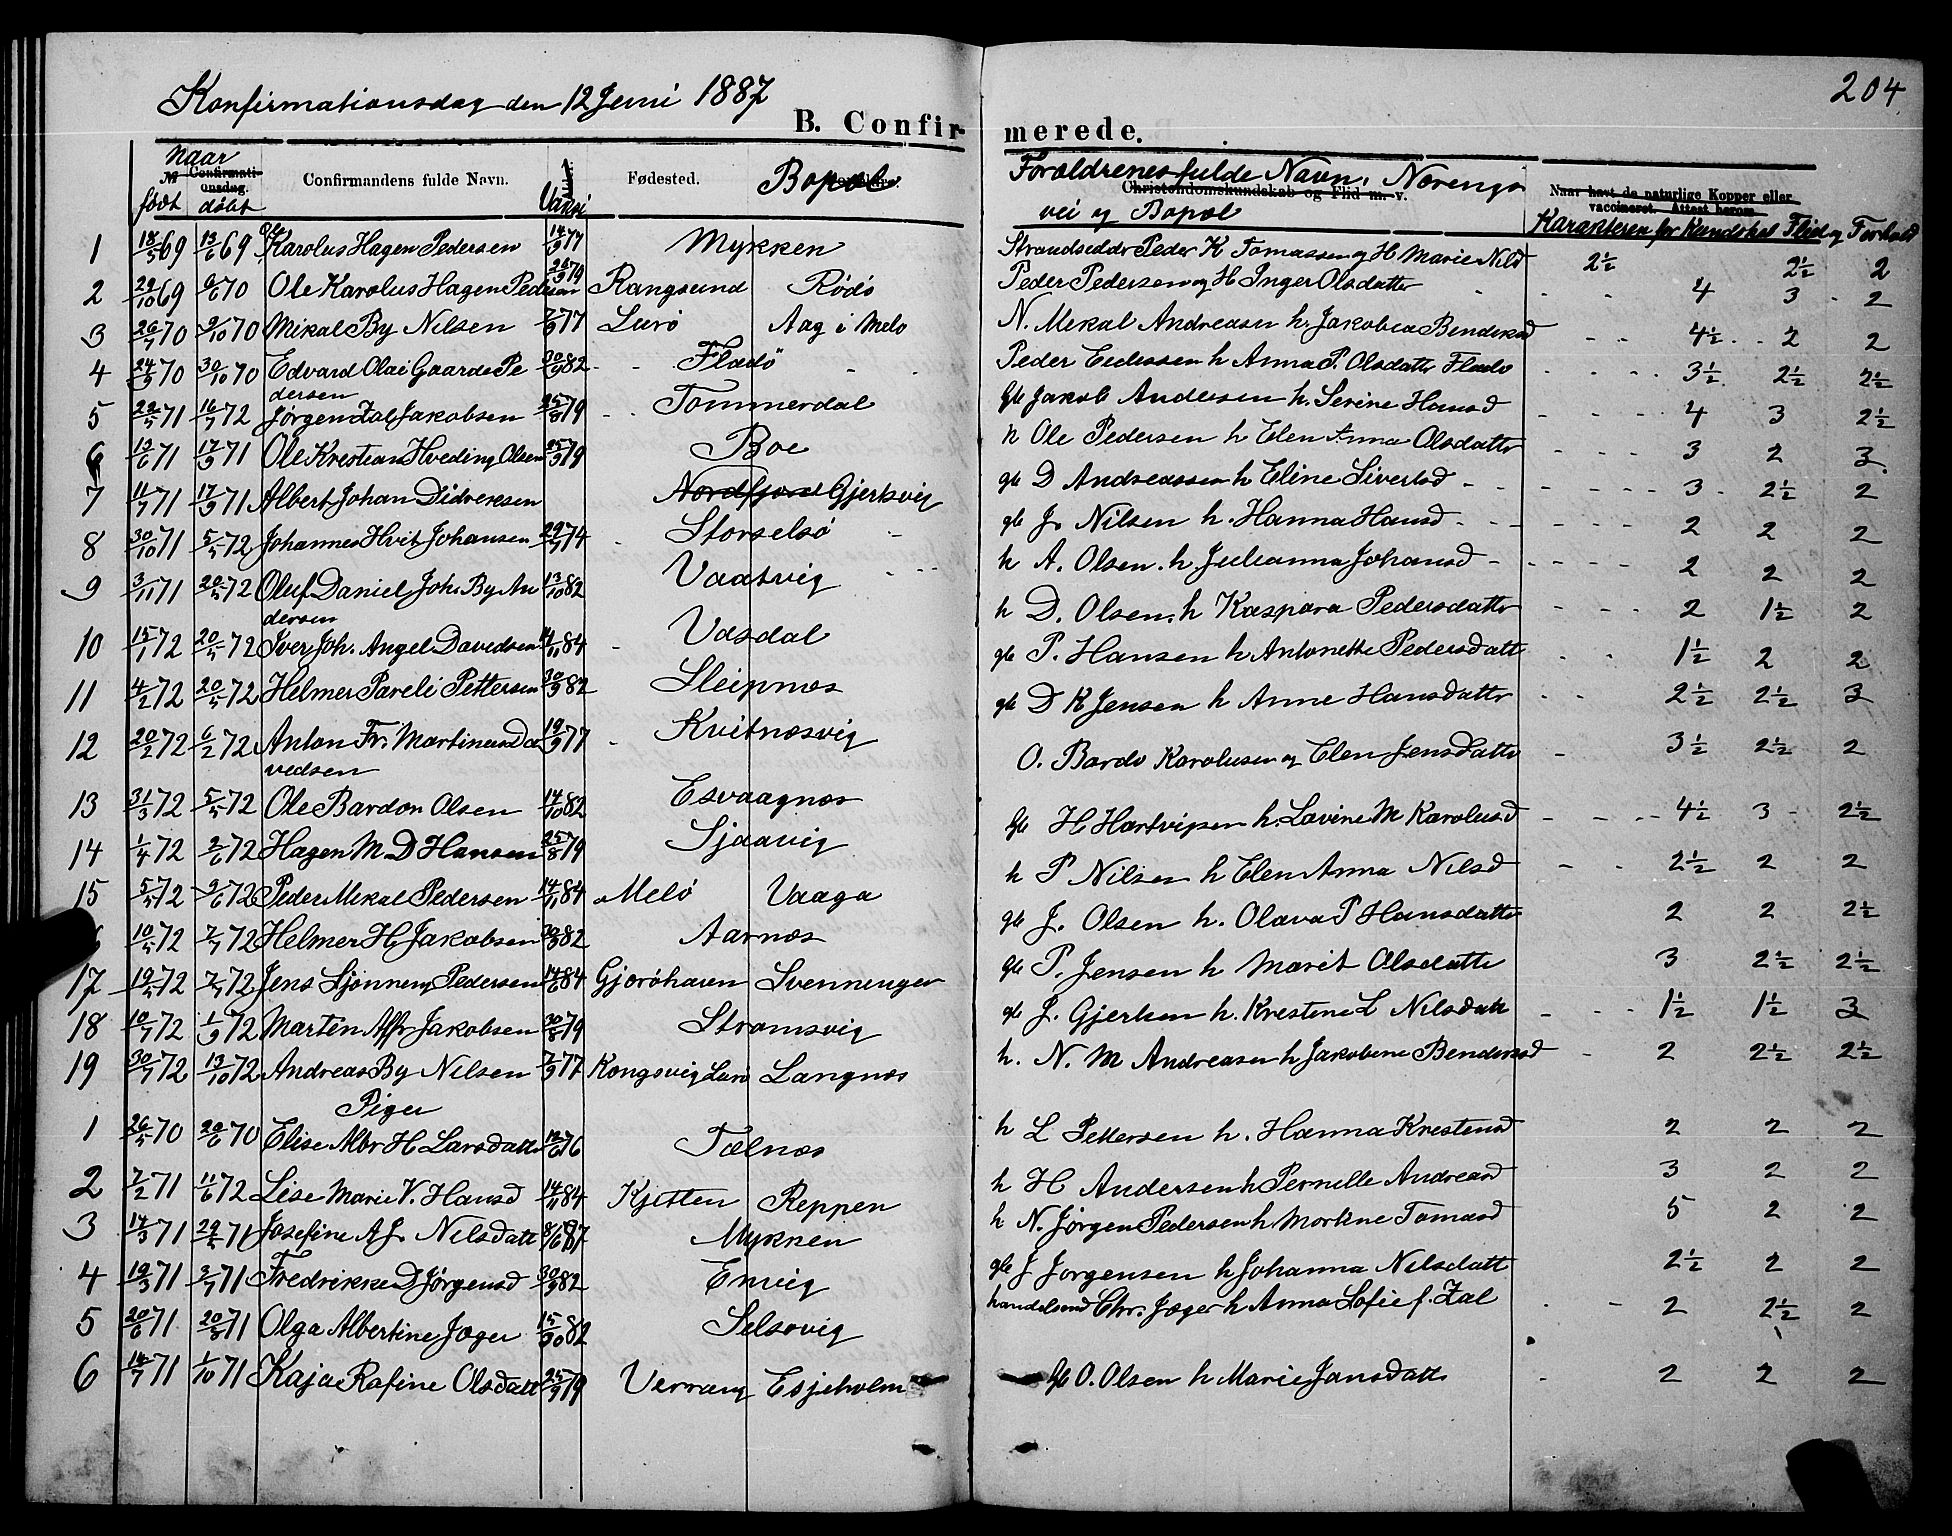 204
Konfirmationsdag den 12 Juni 1887
B. Confirmerede.
Naar
N Confirmationsdag. Confirmandens fulde Navn. Fødested. Bopæl
født døbt Vaksi
Forældrenes fulde Navn, Nærengs
Christendomskundskab og Flid m. v.
vei og Bopæl
Naar havt de naturlige Kopper eller vaccineret. Attest herom.
Karakteren for Kundskab Flid og Forhold
1 18/5 69 13/6 69 Karolus Hagen Pedersen 14/9 77 Mykken Strandsidder Peder K Tomassen og H Marie Nilsd 2½ 2½ 2
2 29/10 69 6/6 70 Ole Karolus Hagen Pedersen 26/9 79 Rangsund Rødø Peder Pedersen og H Inger Olsdatter 4 3 2
3 26/7 70 9/10 70 Mikal By Nilsen 7/9 77 Lurø Aag i Melø N. Mekal Andreasen h. Jakobea Bendeksd 4½ 2 2
4 24/9 70 30/10 70 Edvard Olai Gaarde Pe 30/9 82 Fladø Peder Eidessen h Anna P. Olsdatter Fladø 3½ 2½ 2½
dersen
5 22/5 71 16/7 72 Jørgen Zal Jakobsen 25/8 79 Tommerdal gb Jakob Andersen h. Serine Hansd 4 3 2½
6 12/6 71 17/9 71 Ole Krestian Hveding Olsen 25/9 79 Boe h Ole Pedersen h Elen Anna Olsdatter 3 2 3
7 11/7 71 17/9 71 Albert Johan Didreksen Nordfjord Gjersvig gb D Andreassen h Eline Sivertsd 3 2½ 2
8 30/10 71 5/5 72 Johannes Hvit Johansen 29/7 74 Storselsø gb J. Nilsen h. Hanna Hansd 2 2 2
9 3/11 71 20/5 72 Oluf Daniel Joh. By An 13/10 82 Vaatvig h A. Olsen h Julianna Johansd 2 2 2
dersen
10 15/1 72 20/5 72 Iver Joh. Angel Davedsen 14/11 84 Vasdal h D. Olsen h Kaspara Pedersdatter 2 1½ 2
11 4/2 72 20/5 72 Helmer Pareli Pettersen 30/9 82 Sleipnes gb P. Hansen h Antonette Pedersdatt 1½ 2 2
12 20/2 72 6/2 72 Anton Fr. Martinus Da 19/9 77 Kvitnæsvig gb D K Jensen h Anne Hansdatter 2½ 2½ 3
vedsen
13 31/3 72 5/5 72 Ole Bardon Olsen 14/10 82 Esvaagnæs O. Bardo Karolusen og Elen Jensdatter 3½ 2½ 2
14 1/4 72 2/6 72 Hagen M D Hansen 25/8 79 Sjaavig gb H Hartvigsen h. Lovine M Karolusd 4½ 3 2½
15 5/5 72 9/6 72 Peder Mekal Pedersen 14/11 84 Melø Vaaga h P Nilsen h Elen Anna Nilsd 2½ 2 2
10/5 72 7/7 72 Helmer H Jakobsen 30/9 82 Aarnes gb J. Olsen h. Olava P Hansdatter 2 2 2½
17 19/5 72 7/7 72 Jens Sjønneng Pedersen 14/6 84 Gjorøhavn Svenningen gb P. Jensen h Marit Olsdatte 3 2½ 2½
18 10/7 72 1/9 72 Martin Alfr Jakobsen 30/8 79 Strømsvig gb J. Gjertsen h. Krestene L Nilsdatt 1½ 1½ 3
19 30/7 72 13/10 72 Andreas By Nilsen 7/9 77 Kongsvig Lurø Langnes h. N. M Andreasen h Jakobine Bendeksd 2 2½ 2½
Piger
1 26/5 70 20/6 70 Elise Albr H Larsdatter 12/6 76 Tælnæs h L Pettersen h. Hanna Krestensd 2 2 2
2 7/2 71 11/6 72 Lise Marie V. Hansd 14/11 84 Kjetten Reppen h H Andersen h Pernille Andreasd 3 2 2
3 14/3 71 29/5 71 Josefine A J. Nilsdatt 8/6 87 Mykken h N. Jørgen Pedersen h Markne Tomasd 5 2 2
4 19/3 71 3/7 71 Fredrikke D Jørgensd 30/9 82 Envig gb J Jørgensen h Johanna Nilsdatt 2½ 2 2
5 20/6 71 20/8 71 Olga Albertine Jæger 15/10 82 Selsøvig handelsmd Chr. Jæger h Anna Sofie f. Zal 2 2½ 2
6 14/7 71 1/10 71 Kaja Rafine Olsdatt 25/9 79 Verrang Esjeholm gb O. Olsen h Marie Jansdatt 2 2 2